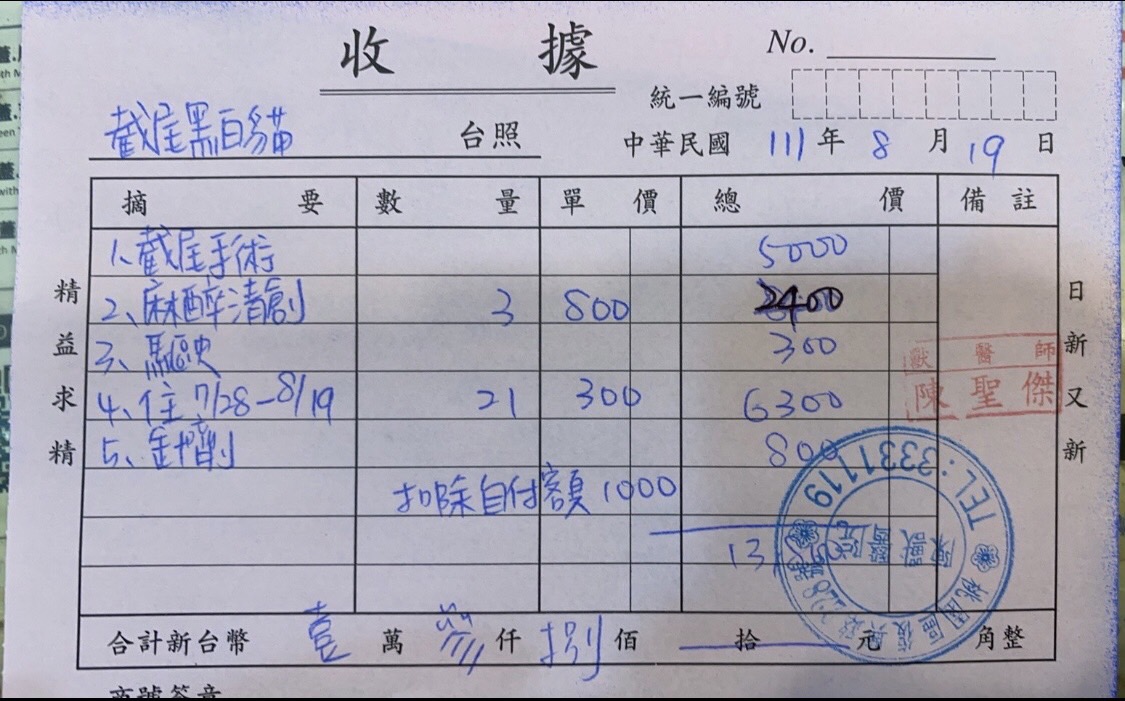 收 據
No.
統一編號
截尾黑白貓 台照
中華民國 111 年 8 月 19 日
摘要 數量 單價 總價 備註
1、截尾手術 5000
2、麻醉清創 3 800 2400
3、驅虫 300
4、住 7/28-8/19 21 300 6300
5、針劑 800
扣除自付額 1000
13
合計新台幣 壹 萬 參 仟 捌 佰 拾 元 角整
精益求精
日新又新
獸醫師
陳聖傑
TEL:3331119
陳獸醫院
桃園區復興路
商號簽章